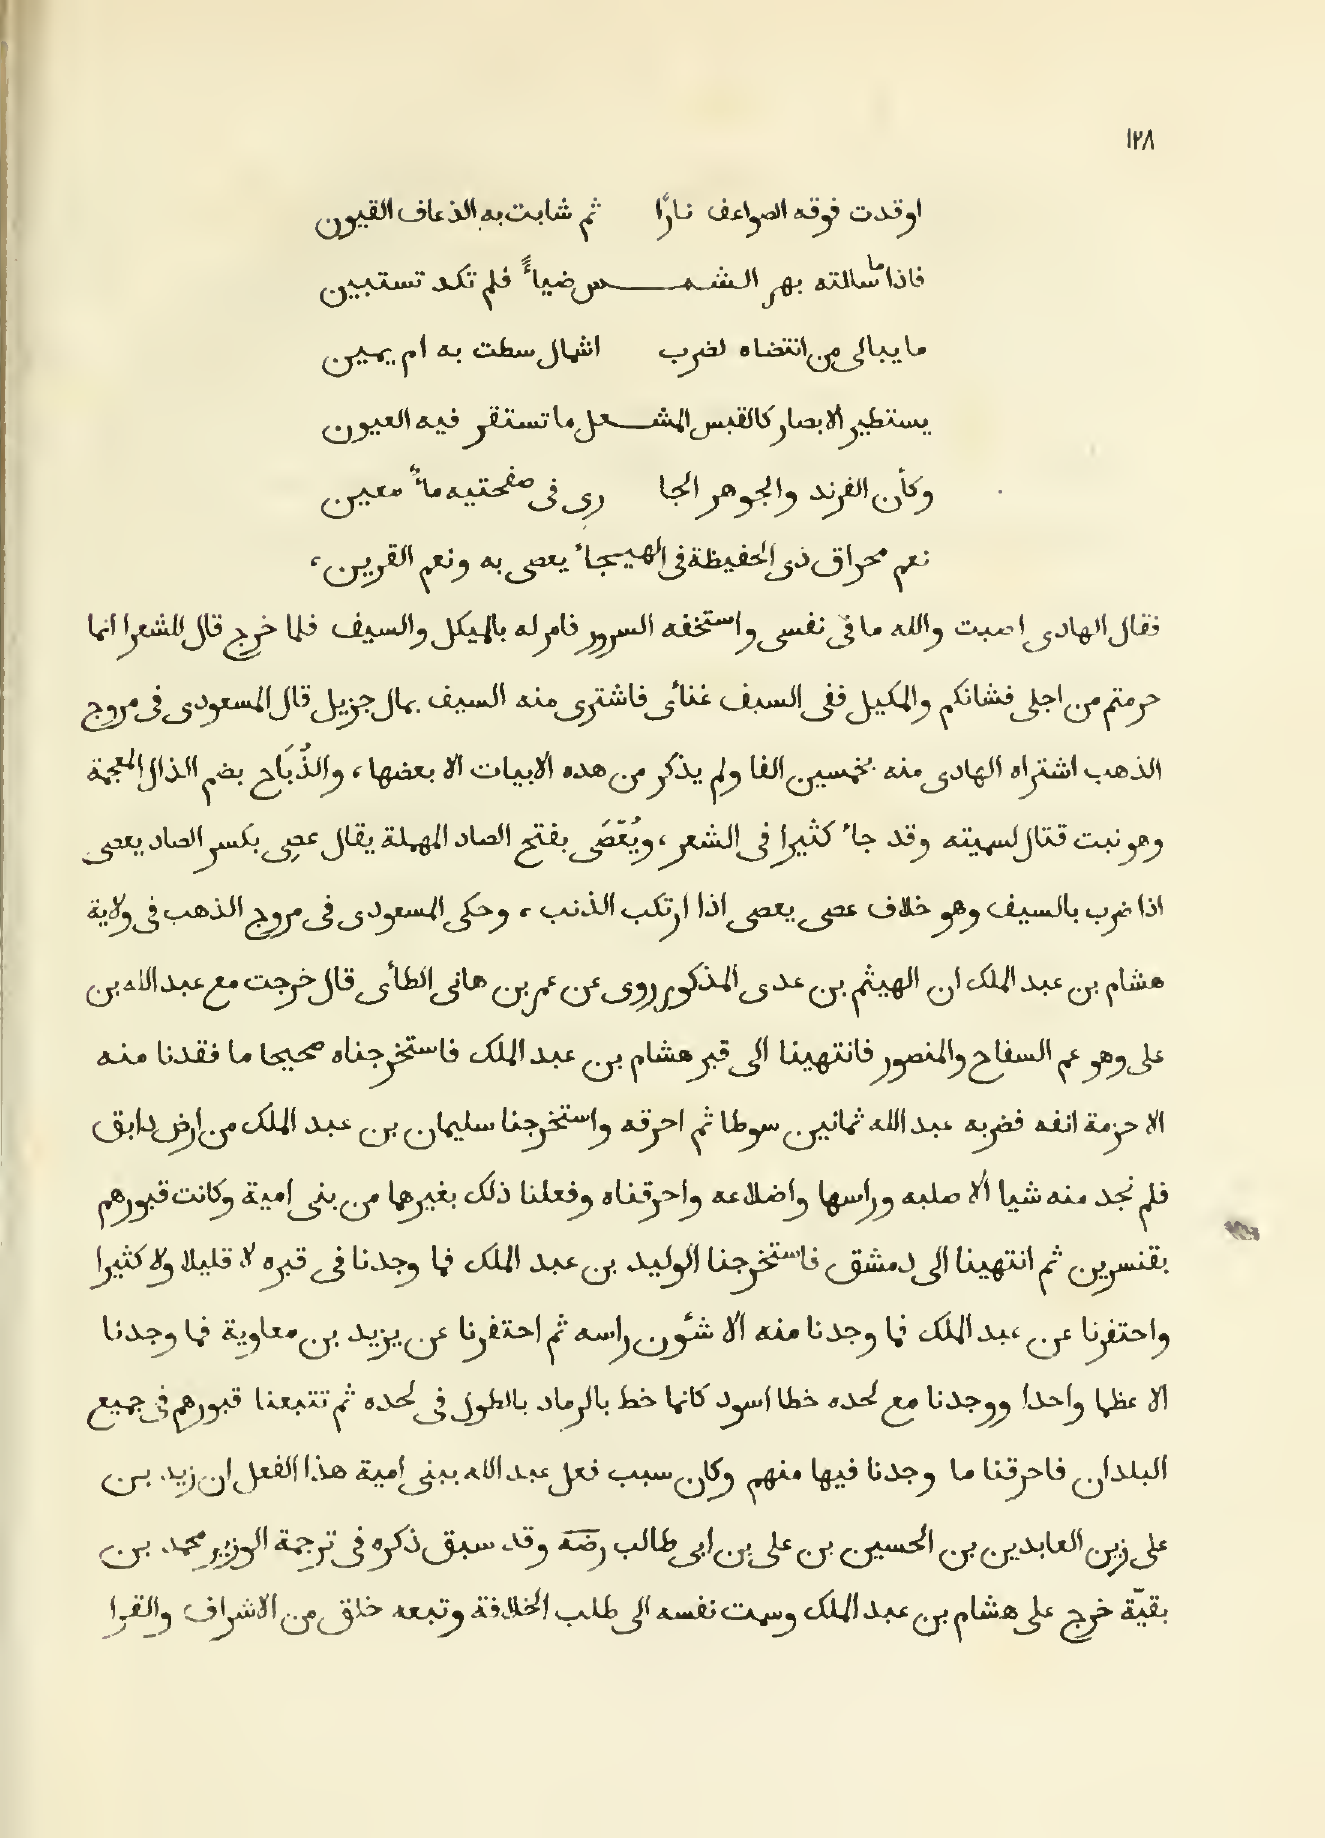 ١٢٨
اوقدت فوقه الصواعف نارًا ثم شابت به الذعاف القيون
فاذا ما سالته بهر الشمس ضياءً فلم تكد تستبين
ما يبالى من انتضاه لضرب اشمال سطت به ام يمين
يستطير الابصار كالقبس المشعل ما تستقر فيه العيون
وكأن الفرند والجوهر الجا رى فى صفحتيه ماءٌ معين
نعم مخراق ذى الحفيظة فى الهيجاء يعصى به ونعم القرين،
فقال الهادى اصبت والله ما فى نفسى واستخفه السرور فامر له بالميكل والسيف فلما خرج قال للشعرا انما
حرمتم من اجلى فشانكم والمكيل ففى السيف غنائى فاشترى منه السيف بمال جزيل قال المسعودى فى مروج
الذهب اشتراه الهادى منه بخمسين الفا ولم يذكر من هذه الابيات الا بعضها، والذُبَاح بضم الذال المعجمة
وهو نبت قتال لسميته وقد جاء كثيرا فى الشعر، ويُعْصَى بفتح الصاد المهملة يقال عصِى بكسر الصاد يعصى
اذا ضرب بالسيف وهو خلاف عصى يعصى اذا ارتكب الذنب، وحكى المسعودى فى مروج الذهب فى ولاية
هشام بن عبد الملك ان الهيثم بن عدى المذكور روى عن عمر بن هانى الطأى قال خرجت مع عبد الله بن
على وهو عم السفاح والمنصور فانتهينا الى قبر هشام بن عبد الملك فاستخرجناه صحيحا ما فقدنا منه
الا حزمة انفه فضربه عبد الله ثمانين سوطا ثم احرقه واستخرجنا سليمان بن عبد الملك من ارض دابق
فلم نجد منه شيا الا صلبه وراسها واضلاعه واحرقناه وفعلنا ذلك بغيرها من بنى امية وكانت قبورهم
بقنسرين ثم انتهينا الى دمشق فاستخرجنا الوليد بن عبد الملك فما وجدنا فى قبره لا قليلا ولا كثيرا
واحتفرنا عن عبد الملك فما وجدنا منه الا شئون راسه ثم احتفرنا عن يزيد بن معاوية فما وجدنا
الا عظما واحدا ووجدنا مع لحده خطا اسود كانما خط بالرماد بالطول فى لحده ثم تتبعنا قبورهم فى جميع
البلدان فاحرقنا ما وجدنا فيها منهم وكان سبب فعل عبد الله ببنى امية هذا الفعل ان زيد بن
على زين العابدين بن الحسين بن على بن ابى طالب رضه وقد سبق ذكره فى ترجمة الوزير محمد بن
بقيّة خرج على هشام بن عبد الملك وسمت نفسه الى طلب الخلافة وتبعه خلق من الاشراف والقرا